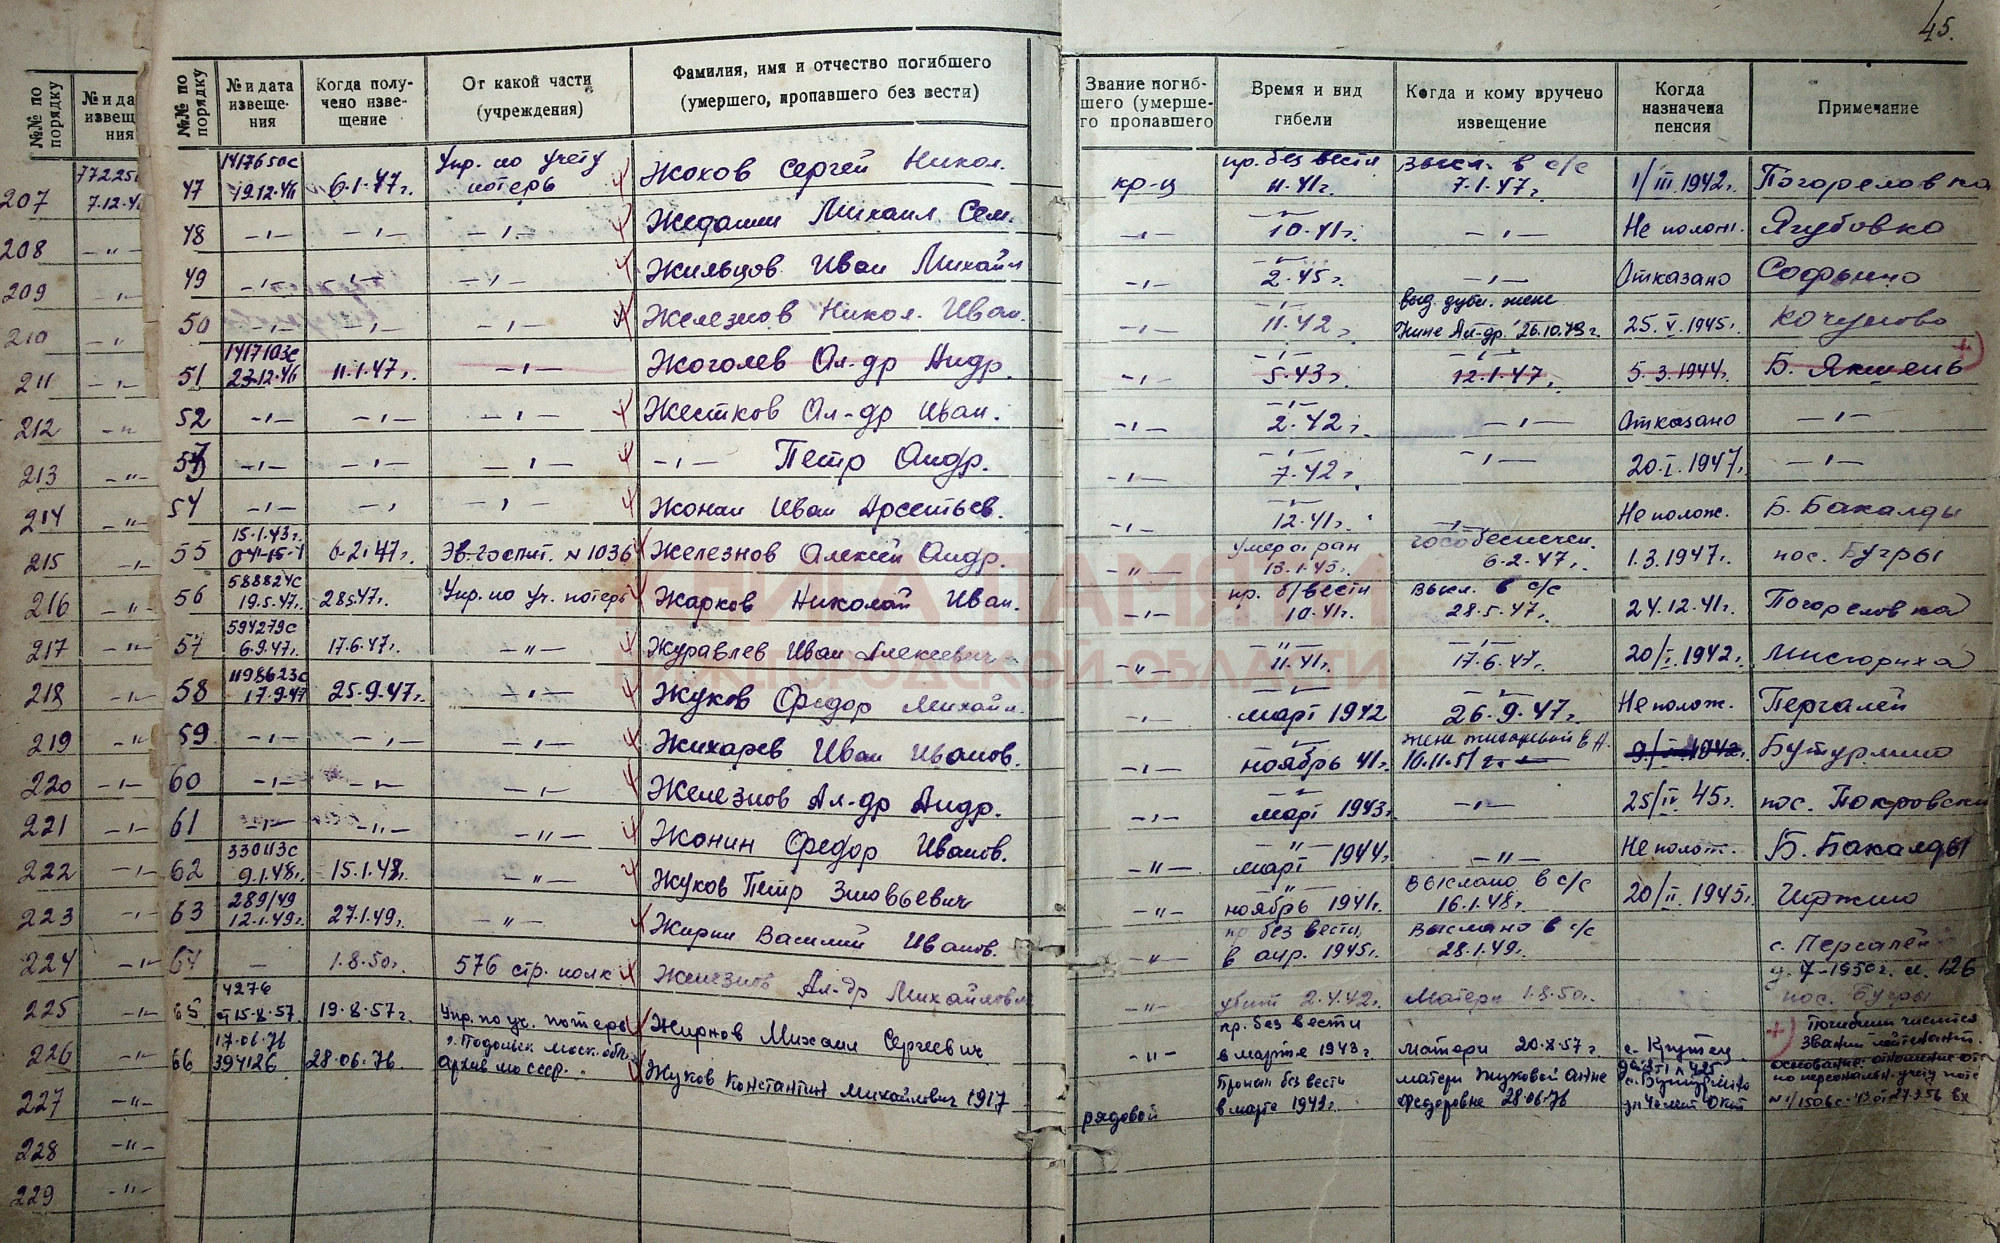 45.
№№ по порядку
№ и да
извещ
ния
№№ по порядку
№ и дата
извеще-
ния
Когда полу-
чено изве-
щение
От какой части
(учреждения)
Фамилия, имя и отчество погибшего
(умершего, пропавшего без вести)
Звание погиб-
шего (умерше-
го пропавшего
Время и вид
гибели
Когда и кому вручено
извещение
Когда
назначена
пенсия
Примечание
207
208 -"-
209 -"-
210 -"-
211 -"-
212 -"-
213 -"-
214 -"-
215 -"-
216 -"-
217 -"-
218 -"-
219 -"-
220 -"-
221 -"-
222 -"-
223 -"-
224 -"-
225 -"-
226 -"-
227 -"-
228 -"-
229 -"-
47 1417650с 19.12.46 6.1.47г. Упр. по учету потерь Жохов Сергей Никол. кр-ц пр. без вести 11.41г. высл. в с/с 7.1.47г. 1/III.1942г. Погореловка
48 -"- -"- -"- Михаил Сем. -"- -"- 10.41г. -"- Не полож. Ягубовка
49 -"- -"- -"- Жильцов Иван Михайл -"- -"- 2.45г. -"- Отказано
50 -"- -"- -"- Железнов Никол. Иван. -"- -"- 11.42г. выд. дубл. жене 25.V.1945г. Кочуново
51 1417103с 23.12.46 11.1.47г. -"- Жоголев Ал-др Андр. -"- -"- 5.43г. -"- 12.1.47г. 5.3.1944г. Б. Якшень
52 -"- -"- -"- Жестков Ал-др Иван. -"- -"- 2.42г. -"- Отказано -"-
53 -"- -"- -"- -"- Петр Андр. -"- -"- 7.42г. -"- 20.I.1947г. -"-
54 -"- -"- -"- Жонин Иван Арсентьев. -"- -"- 12.41г. -"- Не полож. Б. Бакалды
55 15.1.43г. 6.2.47г. Эв. госпит. №1036 Железнов Алексей Андр. -"- Умер от ран 13.1.43г. гособеспечен. 6.2.47г. 1.3.1947г. пос. Бугры
56 588824с 19.5.47г. 28.5.47г. Упр. по уч. потерь Жарков Николай Иван. -"- пр. б/вести 10.41г. высл. в с/с 28.5.47г. 24.12.41г. Погореловка
57 594279с 6.9.47г. 17.6.47г. -"- Журавлев Иван Алексеевич -"- -"- 11.41г. -"- 17.6.47г. 20/I.1942г.
58 1198623с 17.9.47 25.9.47г. -"- Жуков Федор Михайл. -"- -"- март 1942 -"- 26.9.47г. Не полож. Пергалей
59 -"- -"- -"- Жихарев Иван Иванов. -"- -"- ноябрь 41г. жене Жихаревой 10.11.51г. Бутурлино
60 -"- -"- -"- Железнов Ал-др Андр. -"- -"- март 1943г. -"- 25/IV 45г. пос. Покровский
61 -"- -"- -"- Жонин Федор Иванов. -"- -"- март 1944г. -"- Не полож. Б. Бакалды
62 330113с 9.1.48г. 15.1.48г. -"- Жуков Петр Зиновьевич -"- -"- ноябрь 1941г. выслано в с/с 16.1.48г. 20/II.1945г. Инжино
63 289/49 12.1.49г. 27.1.49г. -"- Жирнн Василий Иванов. -"- пр. без вести в апр. 1945г. выслано в с/с 28.1.49г. с. Пергалей
64 - 1.8.50г. 576 стр. полк Железнов Ал-др Михайлович -"- убит 2.4.42г. Матери 1.8.50г. пос. Бугры
65 4276 от 15.8.57 19.8.57г. Упр. по уч. потерь Жирнов Михаил Сергеевич -"- пр. без вести в марте 1943г. матери 20.8.57г. с. Крутец Погибшим числится в звании лейтенант.
66 17.06.76 394126 28.06.76 г. Подольск Моск. обл. Архив МО СССР. Жуков Константин Михайлович 1917 рядовой Пропал без вести в марте 1942г. матери Жуковой Анне Федоровне 28.06.76 с. Бутурлино
КНИГА ПАМЯТИ
НИЖЕГОРОДСКОЙ ОБЛАСТИ